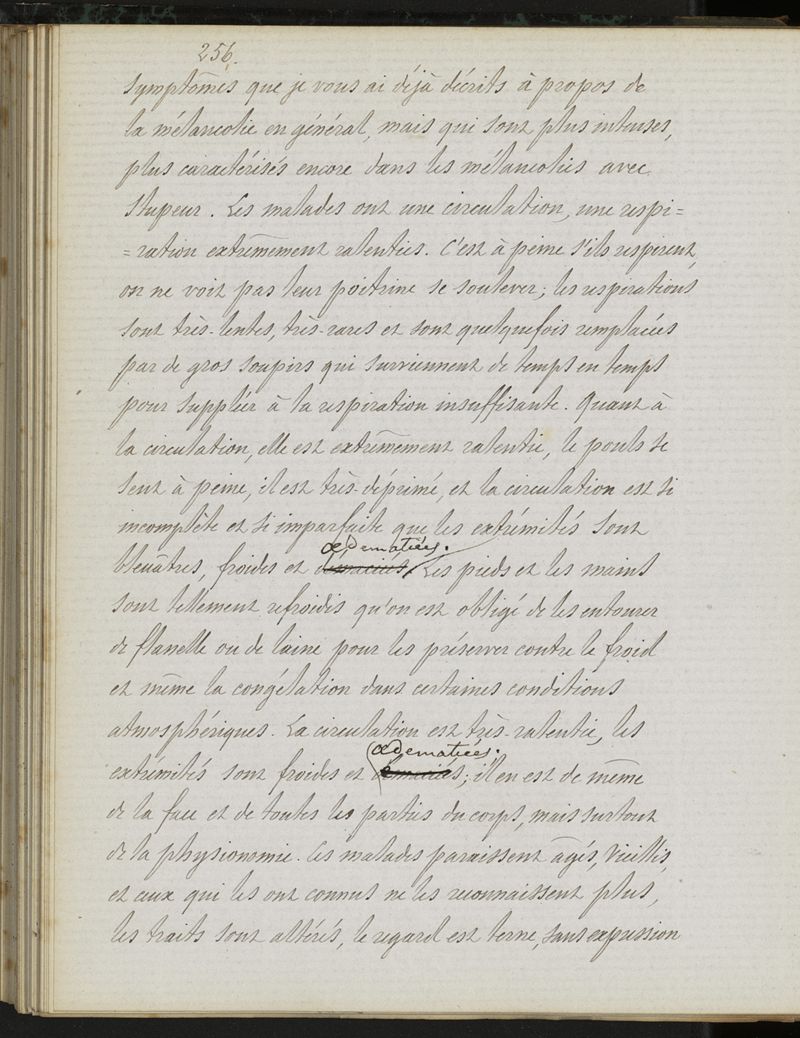 256.
symptômes que je vous ai déjà décrits à propos de
la mélancolie en général, mais qui sont plus intenses,
plus caractérisés encore dans les mélancolies avec
stupeur. Les malades ont une circulation, une respi=
=ration extrêmement ralenties. C'est à peine s'ils respirent,
on ne voit pas leur poitrine se soulever; les respirations
sont très-lentes, très-rares et sont quelquefois remplacées
par de gros soupirs qui surviennent de temps en temps
pour suppléer à la respiration insuffisante. Quant à
la circulation, elle est extrêmement ralentie, le pouls se
sent à peine, il est très-déprimé, et la circulation est si
incomplète et si imparfaite que les extrémités sont
œdematiées.
bleuâtres, froides et Les pieds et les mains
sont tellement refroidis qu'on est obligé de les entourer
de flanelle ou de laine pour les préserver contre le froid
et même la congélation dans certaines conditions
atmosphériques. La circulation est très-ralentie, les
œdematiées.
extrémités sont froides et ; il en est de même
de la face et de toutes les parties du corps, mais surtout
de la physionomie. Ces malades paraissent âgés, vieillis,
et ceux qui les ont connus ne les reconnaissent plus,
les traits sont altérés, le regard est terne, sans expression